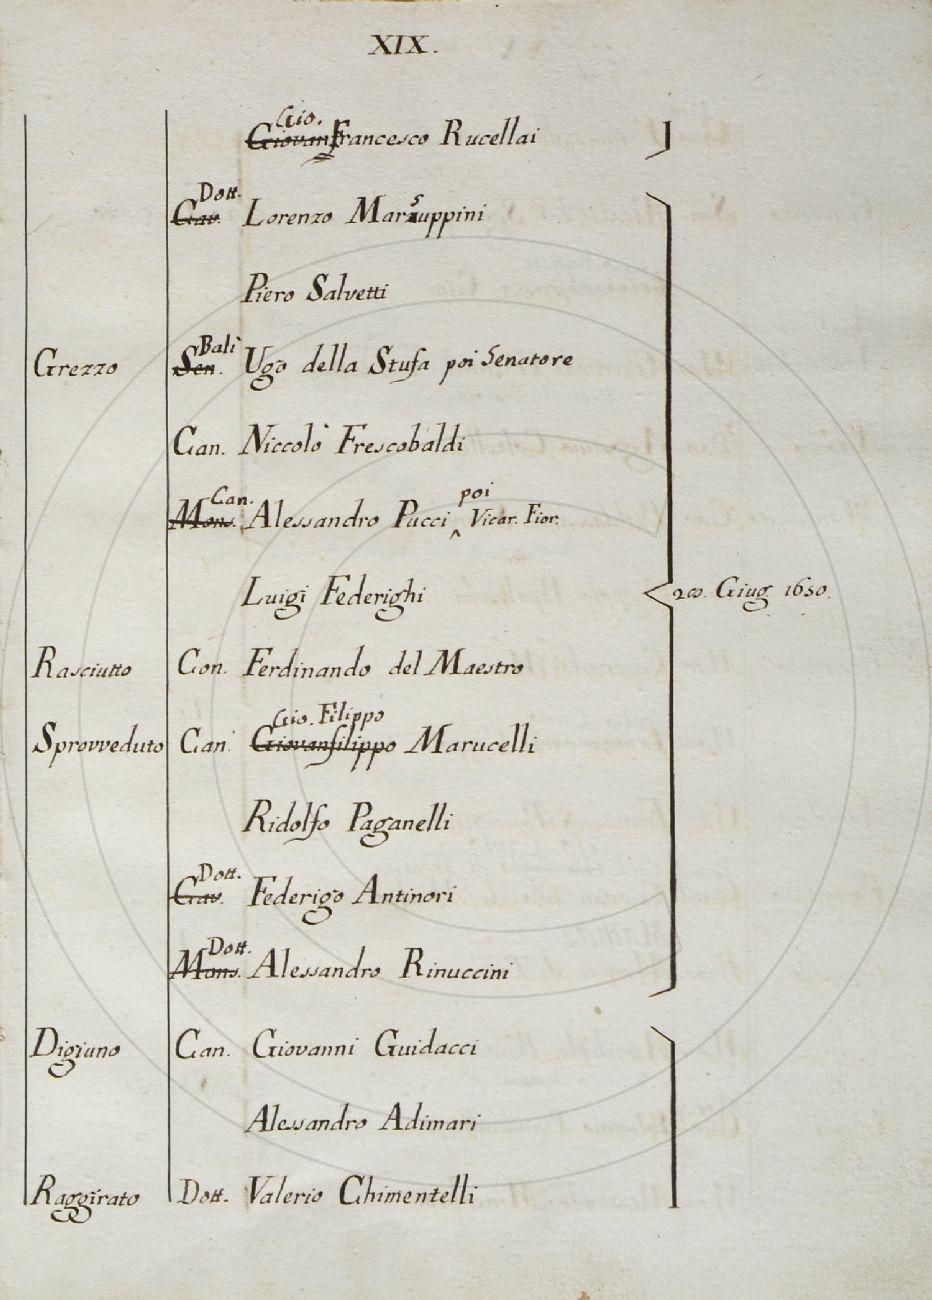 XIX.
Gio.
GiovanFrancesco Rucellai
Dott.
Cav. Lorenzo Marsuppini
Piero Salvetti
Balì
Grezzo Sen. Ugo della Stufa poi Senatore
Can. Niccolò Frescobaldi
Can. poi
Mons. Alessandro Pucci ^ Vicar. Fior.
Luigi Federighi 20. Giug. 1650.
Rasciutto Con. Ferdinando del Maestro
Gio. Filippo
Sprovveduto Can. Giovanfilippo Marucelli
Ridolfo Paganelli
Dott.
Cav. Federigo Antinori
Dott.
Mons. Alessandro Rinuccini
Digiuno Can. Giovanni Guidacci
Alessandro Adimari
Raggirato Dott. Valerio Chimentelli